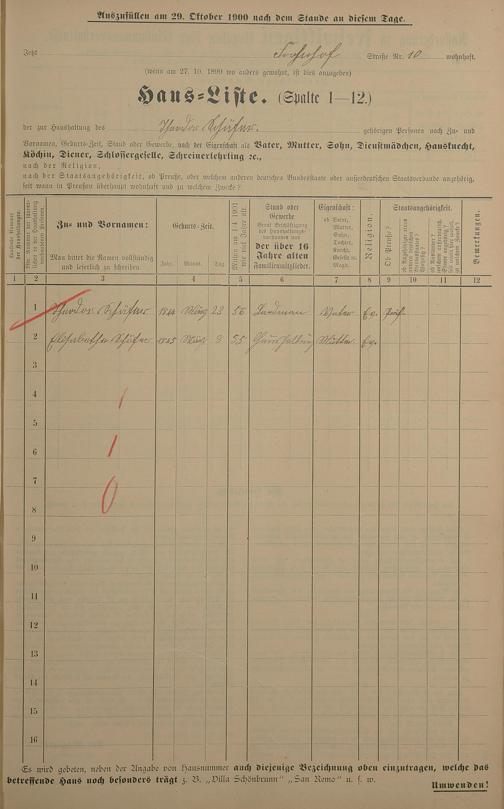 Auszufüllen am 29. Oktober 1900 nach dem Stande an diesem Tage.
Jetzt Straße Nr. 10 wohnhaft.
(wenn am 27. 10. 1899 wo anders gewohnt, ist dies anzugeben)
Haus-Liste. (Spalte 1—12.)
der zur Haushaltung des Theodor Schäfer. gehörigen Personen nach Zu- und
Vornamen, Geburts-Zeit, Stand oder Gewerbe, nach der Eigenschaft als Vater, Mutter, Sohn, Dienstmädchen, Hausknecht,
Köchin, Diener, Schlossergeselle, Schreinerlehrling ec.,
nach der Religion,
nach der Staatsangehörigkeit, ob Preuße, oder welchem anderen deutschen Bundesstaate oder außerdeutschen Staatsverbande angehörig,
seit wann in Preußen überhaupt wohnhaft und zu welchem Zwecke?
Zu- und Vornamen:
Man bittet die Namen vollständig und leserlich zu schreiben
Geburts-Zeit.
Jahr. Monat. Tag
Stand oder Gewerbe
der über 16 Jahre alten Familienmitglieder.
Eigenschaft:
ob Vater, Mutter, Sohn, Tochter, Knecht, Geselle oder Magd.
Religion.
Staatsangehörigkeit.
Ob Preuße?
Bemerkungen.
1 2 3 4 5 6 7 8 9 10 11 12
1 Theodor Schäfer 1844 März 23 56 Landmann Vater Ev. Preuß.
2 Elisabetha Schäfer 1845 März 9 55 Haushaltung Mutter Ev.
3
4
5
6
7
8
9
10
11
12
13
14
15
16
1
1
0
Es wird gebeten, neben der Angabe von Hausnummer auch diejenige Bezeichnung oben einzutragen, welche das
betreffende Haus noch besonders trägt z. B. „Villa Schönbrunn" „San Remo" u. s. w.
Umwenden!